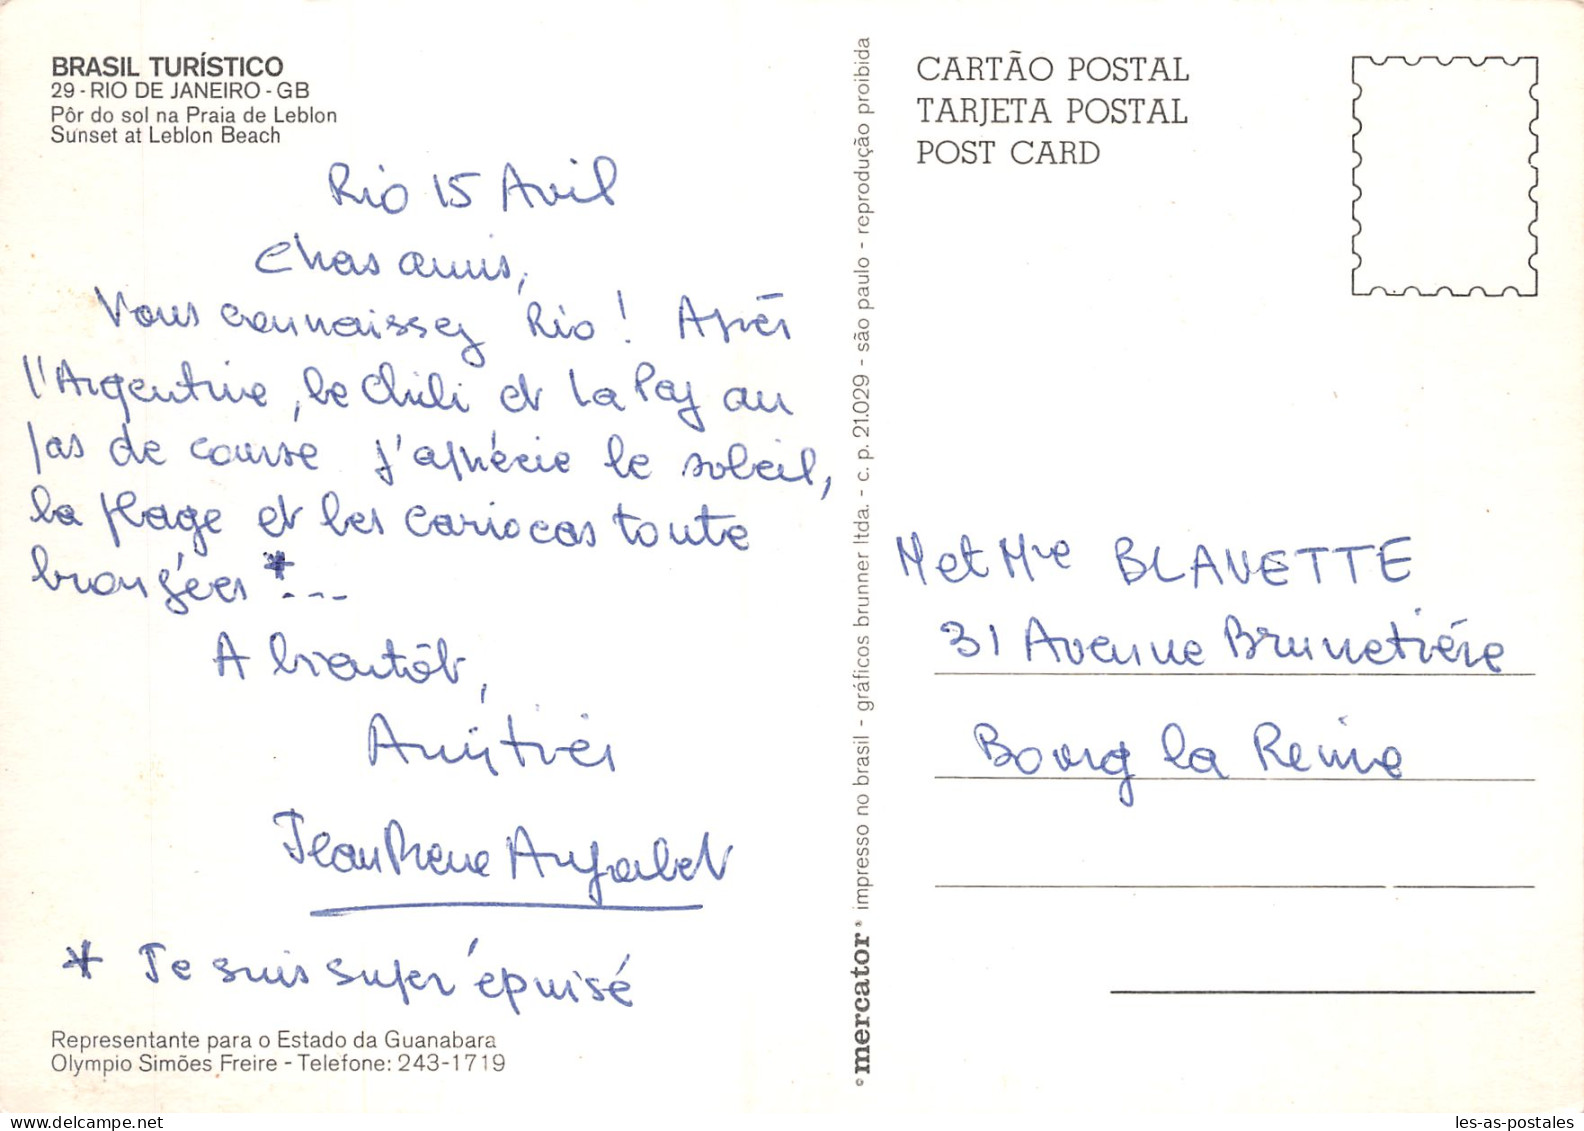 BRASIL TURÍSTICO
29 - RIO DE JANEIRO - GB
Pôr do sol na Praia de Leblon
Sunset at Leblon Beach
Rio 15 Avril
Chers amis,
Vous connaissez Rio ! Après
l'Argentine, le Chili et La Paz au
pas de course j'apprécie le soleil,
la plage et les cariocas toute
bronzées *...
A bientôt,
Amitiés
Jean
* Je suis super épuisé
Representante para o Estado da Guanabara
Olympio Simões Freire - Telefone: 243-1719
mercator impresso no brasil - gráficos brunner ltda. - c. p. 21.029 - são paulo - reprodução proibida
CARTÃO POSTAL
TARJETA POSTAL
POST CARD
M et Mme BLAVETTE
31 Avenue Brunetière
Bourg la Reine
les-as-postales